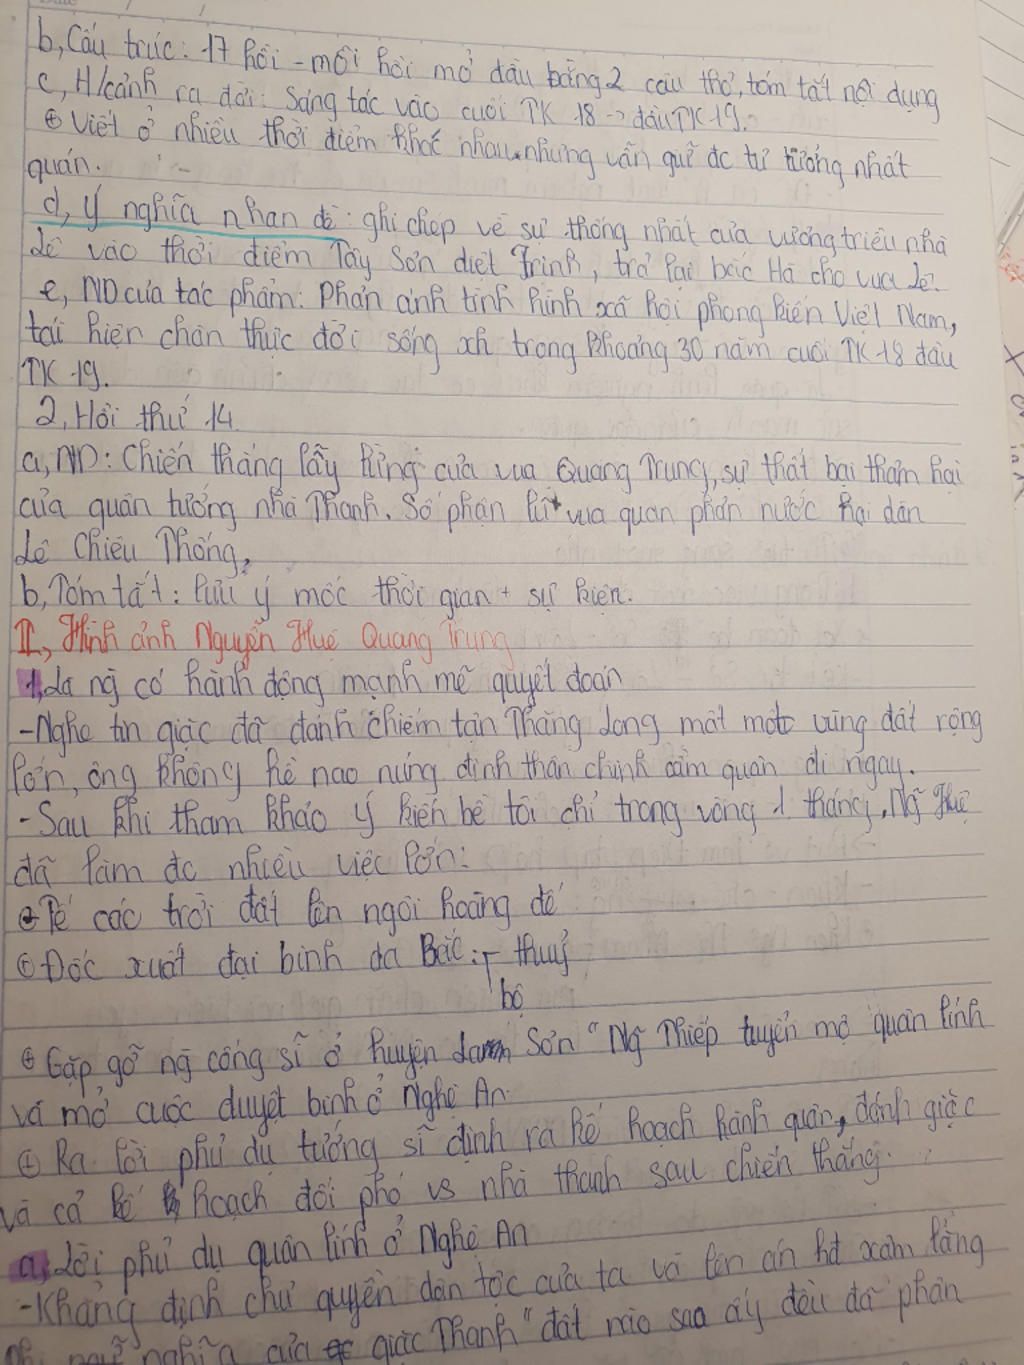 b, Cấu trúc: 17 hồi - mỗi hồi mở đầu bằng 2 câu thơ, tóm tắt nội dụng
c, H/cảnh ra đời: Sáng tác vào cuối TK 18 -> đầu TK 19.
⊕ Viết ở nhiều thời điểm khác nhau nhưng vẫn giữ đc tư tưởng nhất
quán.
d, Ý nghĩa nhan đề: ghi chép về sự thống nhất của vương triều nhà
Lê vào thời điểm Tây Sơn diệt Trịnh, trả lại bắc Hà cho vua Lê.
e, ND của tác phẩm: Phản ánh tình hình xã hội phong kiến Việt Nam,
tái hiện chân thực đời sống xh trong khoảng 30 năm cuối TK 18 đầu
TK 19.
2, Hồi thứ 14
a, ND: Chiến thắng lẫy lừng của vua Quang Trung, sự thất bại thảm hại
của quân tướng nhà Thanh. Số phận lũ vua quan phản nước hại dân
Lê Chiêu Thống,
b, Tóm tắt: lưu ý mốc thời gian + sự kiện.
II, Hình ảnh Nguyễn Huệ Quang Trung
1, Là ng có hành động mạnh mẽ quyết đoán
-Nghe tin giặc đã đánh chiếm tận Thăng Long mất một vùng đất rộng
lớn, ông không hề nao núng định thân chinh cầm quân đi ngay.
-Sau khi tham khảo ý kiến bề tôi chỉ trong vòng 1 tháng, Ng Huệ
đã làm đc nhiều việc lớn:
⊕ Tế cáo trời đất lên ngôi hoàng đế
⊕ Đốc xuất đại binh da Bắc: thuỷ
bộ
⊕ Gặp gỡ ng cống sĩ ở huyện Sơn "Ng Thiếp tuyển mộ quân lính
và mở cuộc duyệt binh ở Nghệ An.
⊕ Ra lời phủ dụ tướng sĩ định ra kế hoạch hành quân, đánh giặc
và cả kế hoạch đối phó vs nhà thanh sau chiến thắng.
a, Lời phủ dụ quân lính ở Nghệ An
-Khẳng định chủ quyền dân tộc của ta và lên án hđ xâm lăng
nghĩa của giặc Thanh "đất nào sao ấy đều đã phân